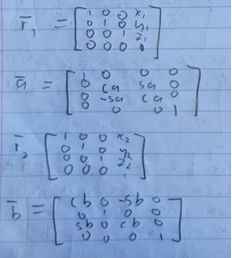 r̄₁ = [1 0 0 x₁
0 1 0 y₁
0 0 1 z₁
0 0 0 1]
ā = [1 0 0 0
0 ca sa 0
0 -sa ca 0
0 0 0 1]
r̄₂ [1 0 0 x₂
0 1 0 y₂
0 0 1 z₂
0 0 0 1]
b̄ = [cb 0 -sb 0
0 1 0 0
sb 0 cb 0
0 0 0 1]